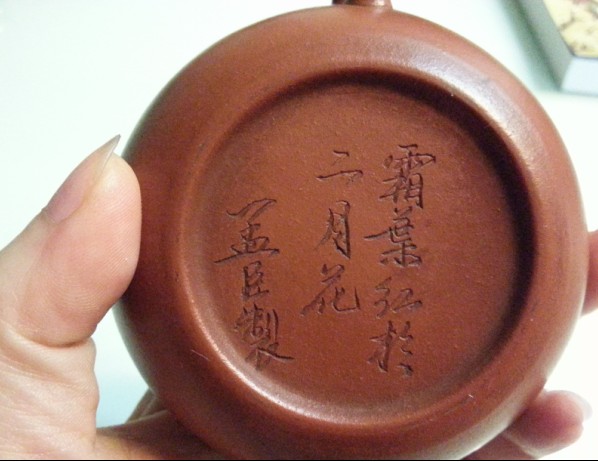 霜葉紅於
二月花
孟臣製